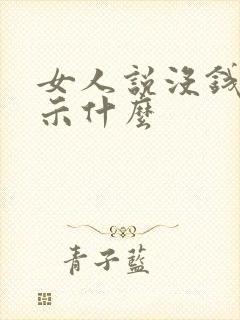 女人説没錢
示什麼
青子藍